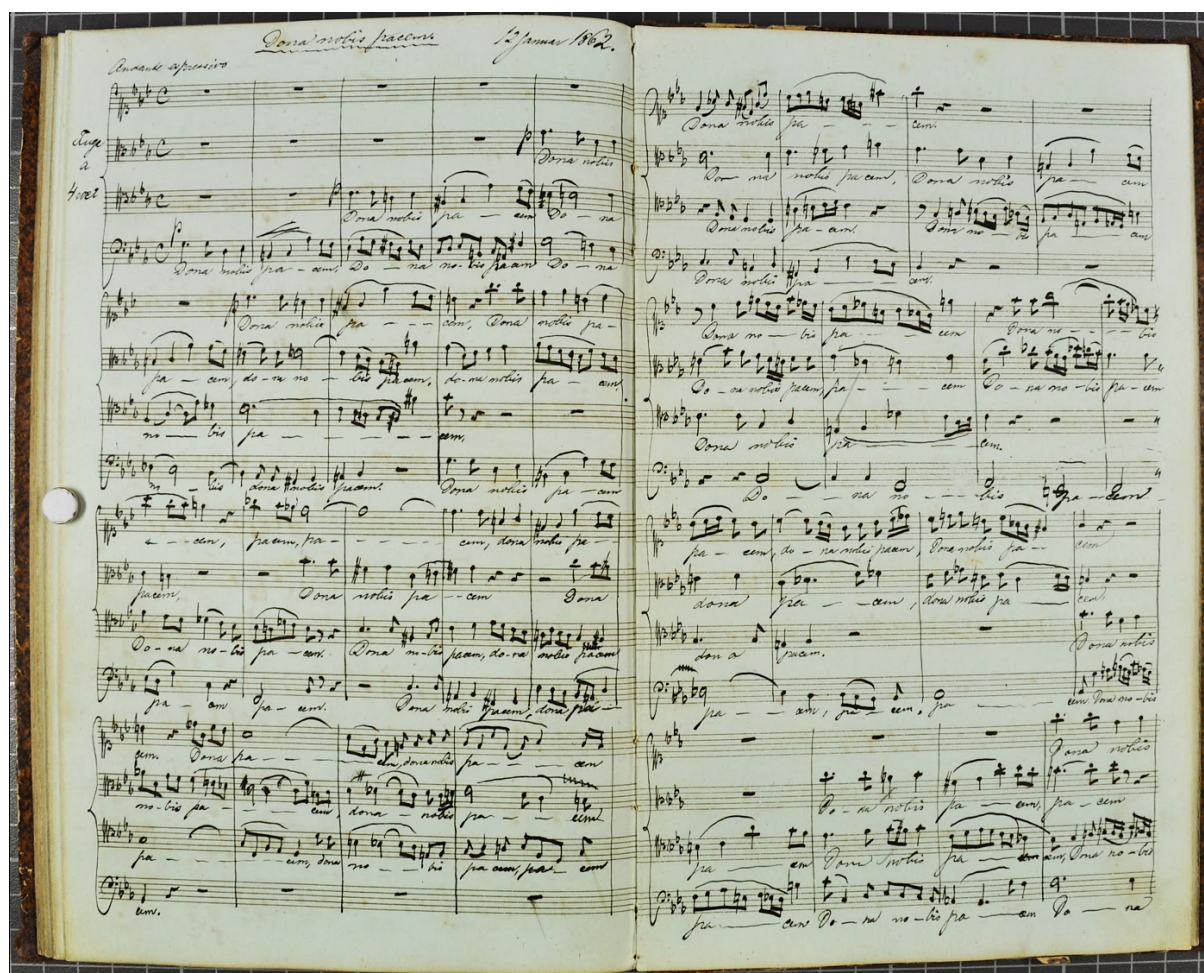 Dona nobis pacem. 12 Januar 1862.
Andante espressivo
Fuge
a
4 voci
p Dona nobis
p Dona nobis pa — cem Do — na
p Dona nobis pa — cem, Do — na no-bis pacem Do — na
Dona nobis pa — — — cem, Dona nobis pa-
pa — cem, do-na no — bis pacem, do-na nobis pa — cem
no — bis pa — — — — — cem,
no — bis dona nobis pacem. Dona nobis pa — cem
— — cem, pacem, pa — — — — — cem, dona nobis pa — —
pacem, Dona nobis pa — cem Dona
Do-na no-bis pa — cem. Dona no-bis pacem, do-na nobis pacem
pa — cem pa — cem. Dona nobis pacem, dona pa —
cem. Dona pa — — — — — cem, dona nobis pa — — — cem
no-bis pa — — — cem, dona — nobis pa — — — cem
pa — — — — — cem, dona no — bis pa cem, pa — cem
cem.
Dona nobis pa — — — cem.
Do — na nobis pa cem, Dona nobis pa — cem
Dona nobis pa — cem. Dona no — bis pa — cem
Dona nobis pa — — — cem.
Dona no — bis pa — — — cem Dona no — — — bis
Do — na nobis pacem, pa — — — cem Do — na no — bis pa — cem
Dona nobis pa — — — cem.
Do — — na no — — — bis pa — cem
pa — cem, do — na nobis pacem, Dona nobis pa — — cem
dona pa — — cem, dona nobis pa — — cem.
don a pacem. Dona nobis
pa — — cem, pa — cem, pa — — — cem. Dona no-bis
Dona nobis
Do — na nobis pa — cem, pa — cem
pa — — — cem Dona nobis pa — — cem, Dona no — bis
pa — — cem Do — na no — bis pa — cem Do — na